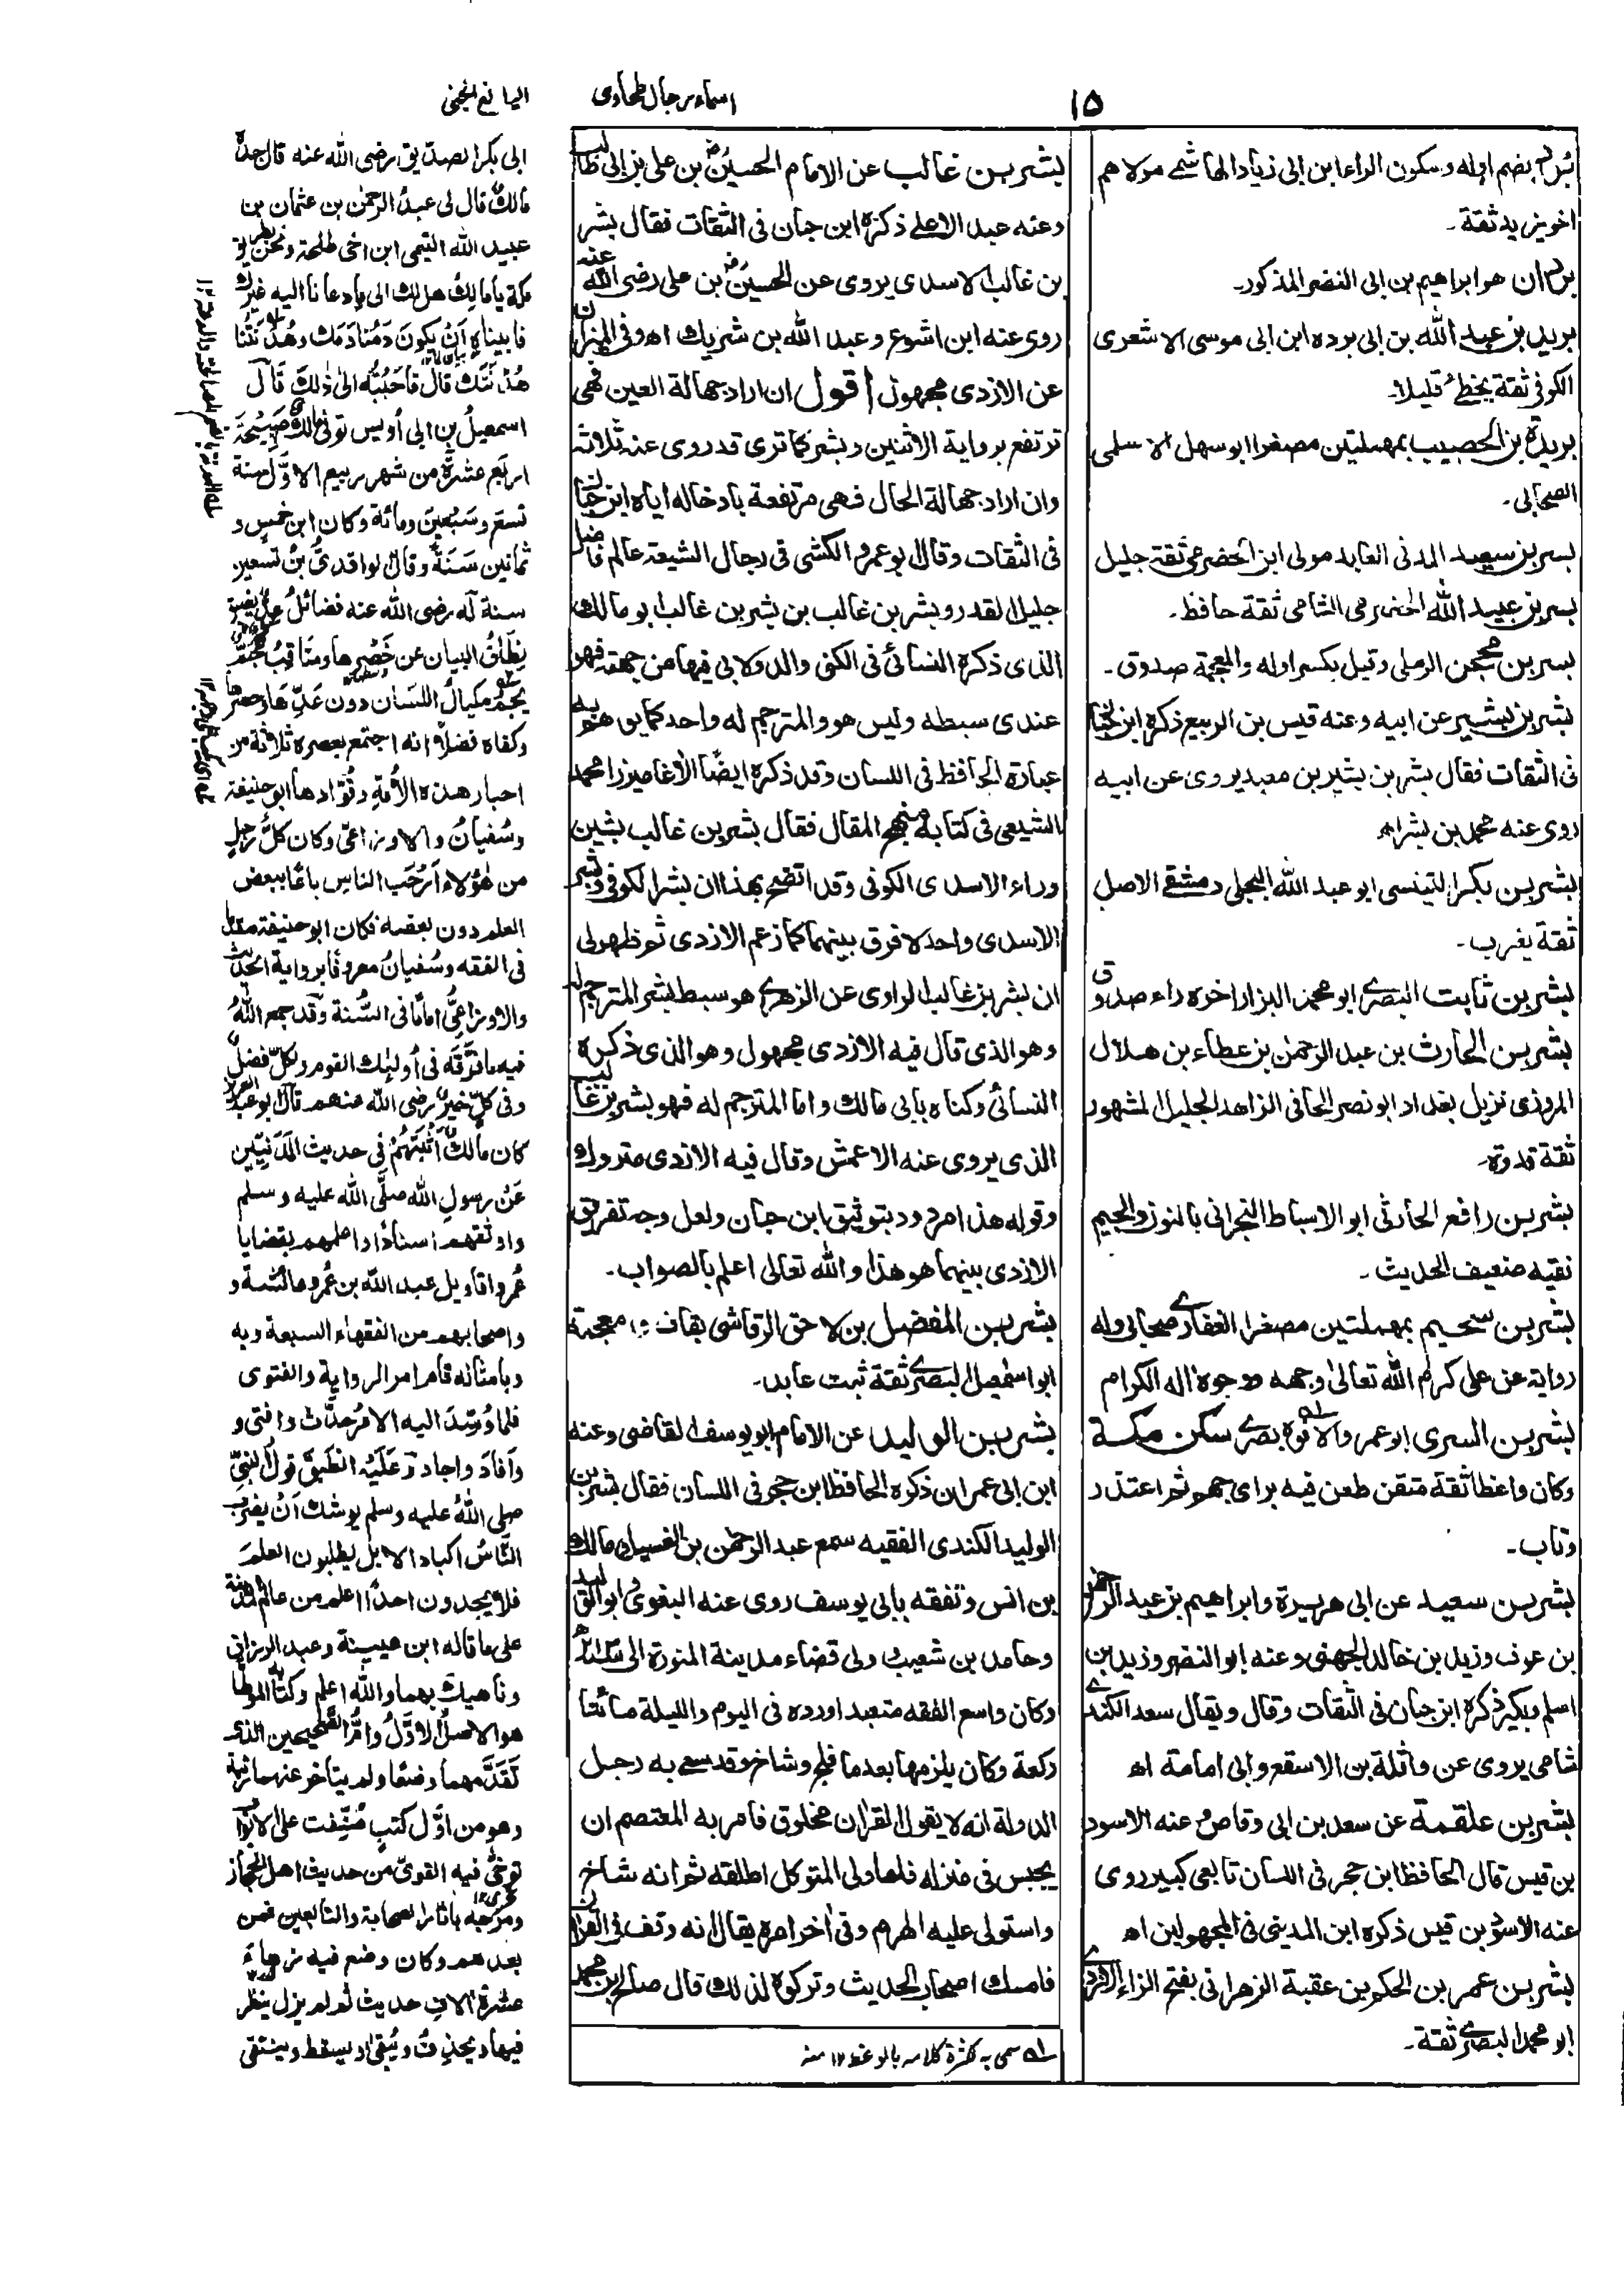 ١٥
اسماء رجال طحاوى
اليانع الجنى
برد بضم اوله وسكون الراء ابن ابى زياد الهاشمے مولاهم
اخو يزيد ثقة ۔
بردان هو ابراهيم بن ابى النضر المذكور۔
بريد بن عبد الله بن ابى برده ابن ابى موسى الاشعرى
الكوفى ثقة يخطئ قليلا۔
بريدة بن الحصيب بمهملتين مصغرا ابو سهل الاسلمى
الصحابى ۔
بسر بن سعيد المدنى العابد مولى ابن الحضرمى ثقة جليل
بسر بن عبيد الله الحضرمى الشامى ثقة حافظ ۔
بسر بن محجن الديلى وقيل بكسر اوله والمعجمة صدوق ۔
بشر بن بشير عن ابيه وعنه قيس بن الربيع ذكره ابن حبان
فى الثقات فقال بشر بن بشير بن معبد يروى عن ابيه
روى عنه محمد بن بشر اھ
بشر بن بكر التنيسى ابو عبد الله البجلى دمشقے الاصل
ثقة يغرب ۔
بشر بن ثابت البصرے ابو محمد البزار اخره راء صدوق
بشر بن الحارث بن عبد الرحمٰن بن عطاء بن هلال
المروزى نزيل بغداد ابو نصر الحافى الزاهد الجليل المشهور
ثقة قدوة۔
بشر بن رافع الحارثى ابو الاسباط النجرانى بالنون والجيم
فقيه ضعيف الحديث ۔
بشر بن سحيم بمهملتين مصغرا الغفارے صحابى وله
رواية عن على كرم الله تعالىٰ وجهه ووجوه اله الكرام
بشر بن السرى ابو عمرو الافوه بصرے سكن مكة
وكان واعظا ثقة متقن طعن فيه براى جهم ثم اعتذر
وتاب ۔
بشر بن سعيد عن ابى هريرة وابراهيم بن عبد الرحمٰن
بن عوف وزيد بن خالد الجهنى وعنه ابو النضر وزيد بن
اسلم وبكير ذكره ابن حبان فى الثقات وقال ويقال سعد الكندے
شامى يروى عن واثلة بن الاسقع وابى امامة اھ
بشر بن علقمة عن سعد بن ابى وقاص وعنه الاسود
بن قيس قال الحافظ ابن حجر فى اللسان تابعى كبير روى
عنه الاسود بن قيس ذكره ابن المدينى فى المجهولين اھ
بشر بن عمر بن الحكم بن عقبة الزهرانى بفتح الزاء الازدے
ابو محمد البصرے ثقة ۔
بشر بن غالب عن الامام الحسين رض بن على بن ابى طالب
وعنه عبد الاعلے ذكره ابن حبان فى الثقات فقال بشر
بن غالب الاسدى يروى عن الحسين رض بن على رضى الله عنه
روى عنه ابن اشوع وعبد الله بن شريك اھ وفى الميزان
عن الازدى مجهول اقول ان اراد جهالة العين فهى
ترتفع برواية الاثنين وبشر كما ترى قد روى عنه ثلاثة
وان اراد جهالة الحال فهى مرتفعة بادخاله اياه ابن حبان
فى الثقات وقال ابو عمرو الكشى فى رجال الشيعة عالم فاضل
جليل القدر وبشر بن غالب بن بشر بن غالب ابو مالك
الذى ذكره النسائى فى الكنى والدولابى فيها من جهته فهو
عندى سبطه وليس هو والمترجم له واحد كما يوهم به
عبارة الحافظ فى اللسان وقد ذكره ايضا الاغا ميرزا محمد
الشيعى فى كتابه منهج المقال فقال بشر بن غالب بشين
وراء الاسدى الكوفى وقد اتضح بهذا ان بشر الكوفى وبشر
الاسدى واحد لا فرق بينهما كما زعم الازدى ثم ظهر لى
ان بشر بن غالب الراوى عن الزهرے هو سبط بشر المترجم له
وهو الذى قال فيه الازدى مجهول وهو الذى ذكره
النسائى وكناه بابى مالك واما المترجم له فهو بشر بن غالب
الذى يروى عنه الاعمش وقال فيه الازدى متروك
وقوله هذا مردود بتوثيق ابن حبان ولعل وجه تفريق
الازدى بينهما هو هذا والله تعالى اعلم بالصواب ۔
بشر بن المفضل بن لاحق الرقاشى بقاف و معجمة
ابو اسمٰعيل البصرے ثقة ثبت عابد۔
بشر بن الوليد عن الامام ابو يوسف القاضى وعنه
ابن ابى عمران ذكره الحافظ ابن حجر فى اللسان فقال بشر بن
الوليد الكندى الفقيه سمع عبد الرحمٰن بن الغسيل ومالك
بن انس وتفقه بابى يوسف روى عنه البغوى وابو القاسم
وحامد بن شعيب ولى قضاء مدينة المنصورة الى
وكان واسع الفقه متعبد اورده فى اليوم والليلة مائتا
ركعة وكان يلزمها بعد ما فلج وشاخ وقد سعے به رجل
الدولة انه لا يقول القران مخلوق فامر به المعتصم ان
يحبس فى منزله فلما ولى المتوكل اطلقه ثم انه شاخ
واستولى عليه الهرم وفى اٰخر امره يقال انه وقف فى القران
فامسك اصحاب الحديث وتركوه لذلك قال صالح ابن محمد
لـه سمى به لكثرة كلامه بالوعظ ١٢ منه
ابى بكر الصديق رضى الله عنه قال جده
مالك قال لى عبد الرحمٰن بن عثمان بن
عبيد الله التيمى ابن اخى طلحة ونحن بطريق
مكة يا مالك هل لك الى ما دعانا اليه غيرك
فابيناه ان يكون دمنا دمك وهدمنا
هدمك قال فاجبته الى ذلك قال
اسمعيل بن ابى اويس توفى مالك صبيحة
اربع عشرة من شهر ربيع الاول سنة
تسع وسبعين ومائة وكان ابن خمس و
ثمانين سنة وقال الواقدى بن تسعين
سنة له رضى الله عنه فضائل جمة يضيق
نطاق البيان عن حصرها ومناقب
مكيال اللسان دون عدها وحصرها
وكفاه فضلا انه اجتمع بعصره ثلاثة من
احبار هذه الامة وقوادها ابو حنيفة
وسفيان والاوزاعى وكان كل رجل
من هؤلاء ارحب الناس باعا ببعض
العلم دون بعضه فكان ابو حنيفة مقدما
فى الفقه وسفيان معروفا برواية الحديث
والاوزاعى اماما فى السنة وقد جمع الله
فيه ما فرقه فى اولئك القوم ولكل فضل
وفى كل خير رضى الله عنهم قال ابو عبد العزيز
كان مالك اثبتهم فى حديث المدنيين
عن رسول الله صلى الله عليه وسلم
واوثقهم اسنادا واعلمهم بقضايا
عمر واقاويل عبد الله بن عمر وعائشة و
واصحابهم من الفقهاء السبعة وبه
وبامثاله قام امر الرواية والفتوى
فلما وسد اليه الامر حدث وافتى و
وافاد واجاد وعليه انطبق قول النبى
صلى الله عليه وسلم يوشك ان يضرب
الناس اكباد الابل يطلبون العلم
فلا يجدون احدا اعلم من عالم المدينة
على ما قاله ابن عيينة وعبد الرزاق
وناهيك بهما والله اعلم وكتابه الموطا
هو الاصل الاول وام الصحيحين الذى
تقدمهما وضعا ولم يتاخر عنهما رتبة
وهو من اول كتب صنفت على الابواب
توخى فيه القوى من حديث اهل الحجاز
ومزجه باثار الصحابة والتابعين فمن
بعدهم وكان وضع فيه زهاء
عشرة الاف حديث ثم لم يزل ينظر
فيها ويحذف ويبقى او يسقط وينتقى